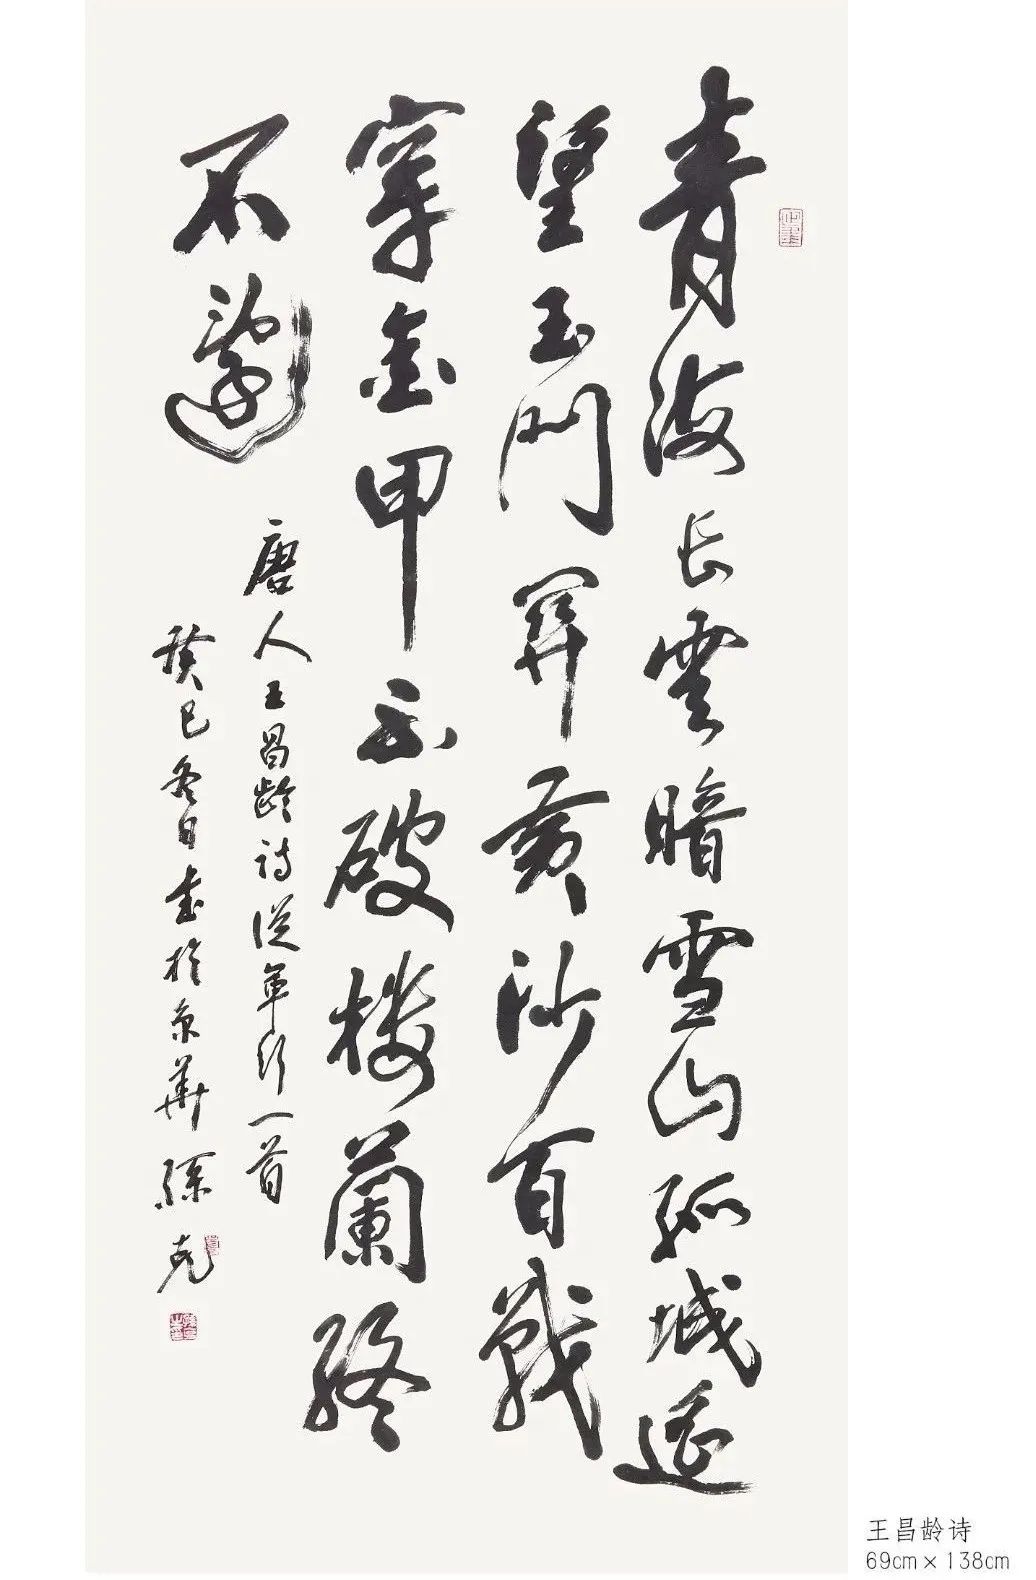 青海長雲暗雪山孤城遥
望玉門關黄沙百戰
穿金甲不破樓蘭終
不還
唐人王昌齡詩從軍行一首
癸巳冬日書於京華 孫克
王昌龄诗
69cm×138cm